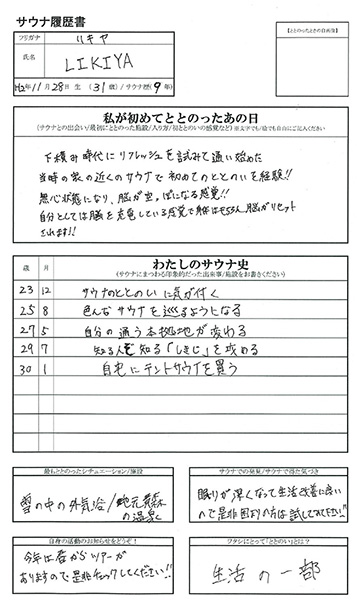 サウナ履歴書
【ととのったときの自画像】
フリガナ リキヤ
氏名 LIKIYA
H2年11月28日生(31歳)/サウナ歴(9年)
私が初めてととのったあの日
(サウナとの出会い/最初にととのった施設/入り方/初ととのいの感覚など)※文字でも/絵でも自由にご記入ください
下積み時代にリフレッシュを試みて通い始めた
当時の家の近くのサウナで初めてのととのいを経験!!
無心状態になり、脳が空っぽになる感覚!!
自分としては脳を充電している感覚で身体はもちろん、脳がリセット
されます!!
わたしのサウナ史
歳 月 (サウナにまつわる印象的だった出来事/施設をお書きください)
23 12 サウナのととのいに気が付く
25 8 色んなサウナを巡るようになる
27 5 自分の通う本拠地が変わる
29 7 知る人ぞ知る「しきじ」を攻める
30 1 自宅にテントサウナを買う
最もととのったシチュエーション/施設
雪の中の外気浴/地元青森
の温泉
サウナでの発見/サウナで得た気づき
眠りが深くなって生活改善に良い
ので是非困りの方は試してみて下さい!!
自身の活動のお知らせをどうぞ!
今年は春からツアーが
ありますので是非チェックしてください!!
ワタシにとって「ととのい」とは?
生活の一部